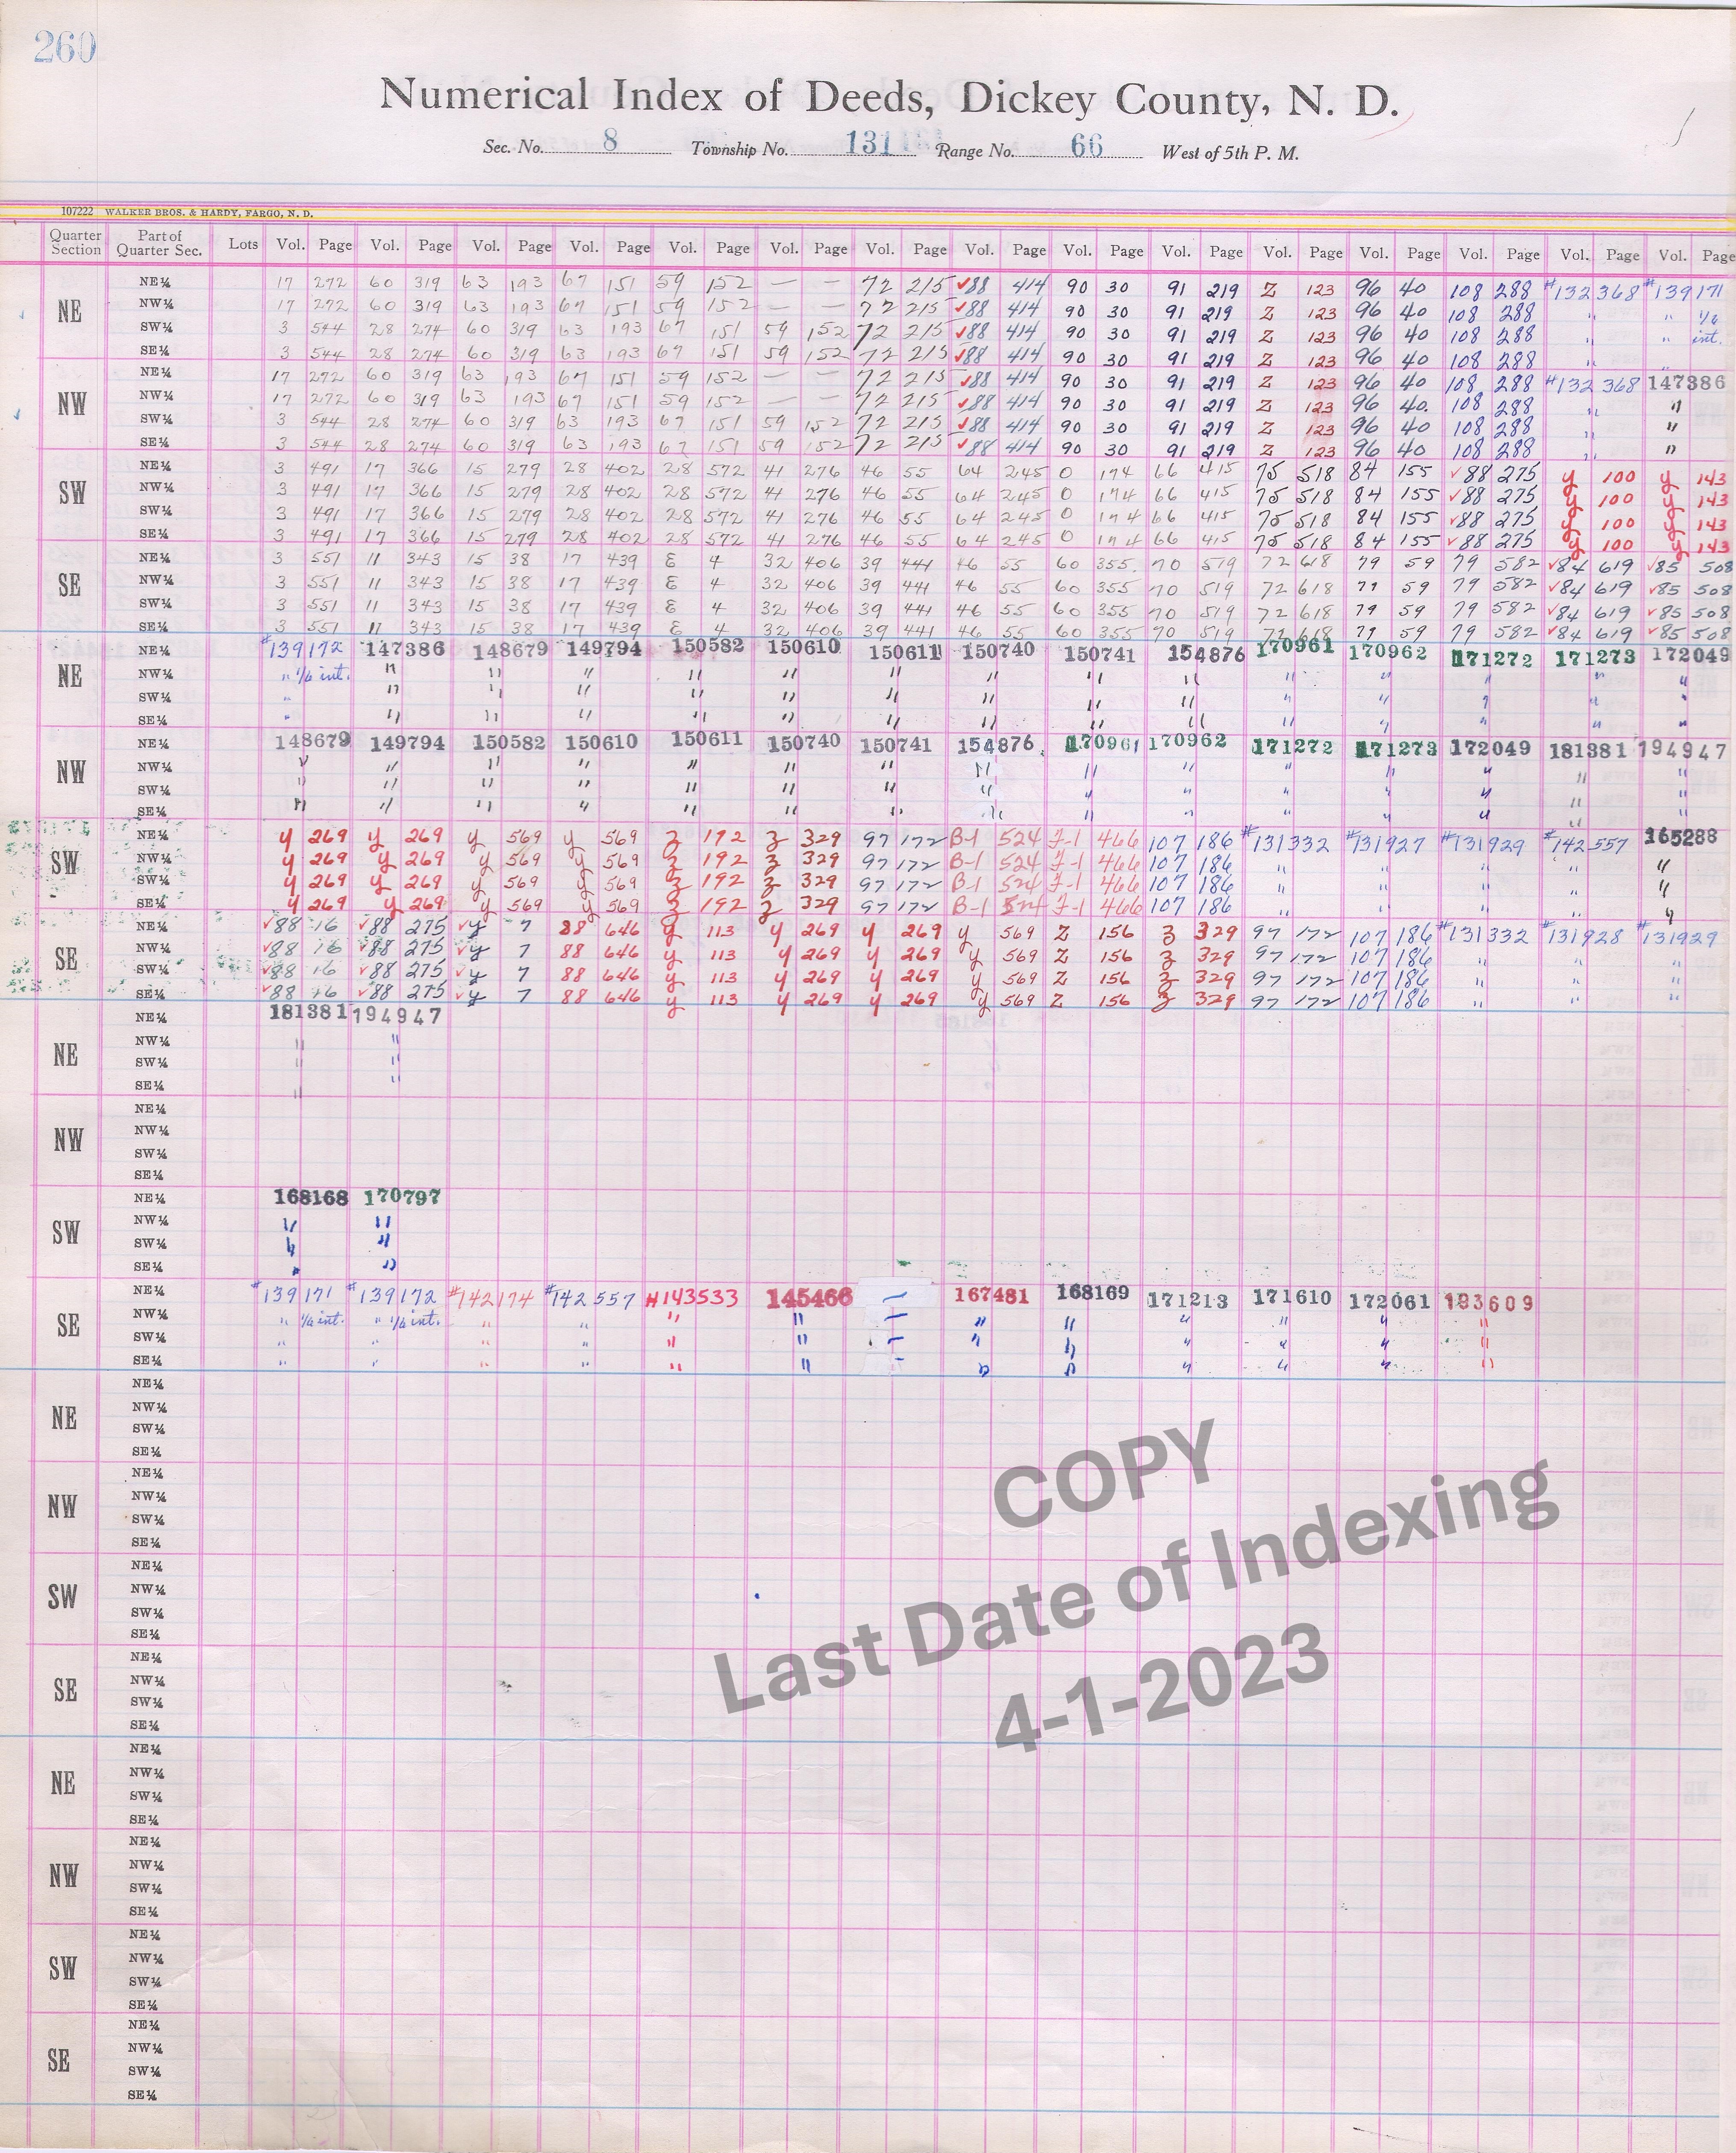 260
Numerical Index of Deeds, Dickey County, N. D.
Sec. No. 8 Township No. 131 Range No. 66 West of 5th P. M.
107222 WALKER BROS. & HARDY, FARGO, N. D.
Quarter Section Part of Quarter Sec. Lots Vol. Page Vol. Page Vol. Page Vol. Page Vol. Page Vol. Page Vol. Page Vol. Page Vol. Page Vol. Page Vol. Page Vol. Page Vol. Page Vol. Page Vol. Page
NE
NE¼ 17 272 60 319 63 193 67 151 59 152 — — 72 215 ✓88 414 90 30 91 219 Z 123 96 40 108 288 #132 368 #139 171
NW¼ 17 272 60 319 63 193 67 151 59 152 — — 72 215 ✓88 414 90 30 91 219 Z 123 96 40 108 288 " " 1/6
SW¼ 3 544 28 274 60 319 63 193 67 151 59 152 72 215 ✓88 414 90 30 91 219 Z 123 96 40 108 288 " " int.
SE¼ 3 544 28 274 60 319 63 193 67 151 59 152 72 215 ✓88 414 90 30 91 219 Z 123 96 40 108 288 " "
NW
NE¼ 17 272 60 319 63 193 67 151 59 152 — — 72 215 ✓88 414 90 30 91 219 Z 123 96 40 108 288 #132 368 147386
NW¼ 17 272 60 319 63 193 67 151 59 152 — — 72 215 ✓88 414 90 30 91 219 Z 123 96 40. 108 288 " "
SW¼ 3 544 28 274 60 319 63 193 67 151 59 152 72 215 ✓88 414 90 30 91 219 Z 123 96 40 108 288 " "
SE¼ 3 544 28 274 60 319 63 193 67 151 59 152 72 215 ✓88 414 90 30 91 219 Z 123 96 40 108 288 " "
SW
NE¼ 3 491 17 366 15 279 28 402 28 572 41 276 46 55 64 245 O 174 66 415 75 518 84 155 ✓88 275 y 100 y 143
NW¼ 3 491 17 366 15 279 28 402 28 572 41 276 46 55 64 245 O 174 66 415 75 518 84 155 ✓88 275 y 100 y 143
SW¼ 3 491 17 366 15 279 28 402 28 572 41 276 46 55 64 245 O 174 66 415 75 518 84 155 ✓88 275 y 100 y 143
SE¼ 3 491 17 366 15 279 28 402 28 572 41 276 46 55 64 245 O 174 66 415 75 518 84 155 ✓88 275 y 100 y 143
SE
NE¼ 3 551 11 343 15 38 17 439 E 4 32 406 39 441 46 55 60 355. 70 519 72 618 79 59 79 582 ✓84 619 ✓85 508
NW¼ 3 551 11 343 15 38 17 439 E 4 32 406 39 441 46 55 60 355 70 519 72 618 79 59 79 582 ✓84 619 ✓85 508
SW¼ 3 551 11 343 15 38 17 439 E 4 32 406 39 441 46 55 60 355 70 519 72 618 79 59 79 582 ✓84 619 ✓85 508
SE¼ 3 551 11 343 15 38 17 439 E 4 32 406 39 441 46 55 60 355 70 519 72 618 79 59 79 582 ✓84 619 ✓85 508
NE
NE¼ #139172 147386 148679 149794 150582 150610 150611 150740 150741 154876 170961 170962 171272 171273 172049
NW¼ " 1/6 int. " " " " " " " " " " " " " "
SW¼ " " " " " " " " " " " " " " "
SE¼ " " " " " " " " " " " " " " "
NW
NE¼ 148679 149794 150582 150610 150611 150740 150741 154876 170961 170962 171272 171273 172049 181381 194947
NW¼ " " " " " " " " " " " " " " "
SW¼ " " " " " " " " " " " " " " "
SE¼ " " " " " " " " " " " " " " "
SW
NE¼ y 269 y 269 y 569 y 569 Z 192 Z 329 97 172 B-1 524 F-1 466 107 186 #131332 #131927 #131929 #142557 165288
NW¼ y 269 y 269 y 569 y 569 Z 192 Z 329 97 172 B-1 524 F-1 466 107 186 " " " " "
SW¼ y 269 y 269 y 569 y 569 Z 192 Z 329 97 172 B-1 524 F-1 466 107 186 " " " " "
SE¼ y 269 y 269 y 569 y 569 Z 192 Z 329 97 172 B-1 524 F-1 466 107 186 " " " " "
SE
NE¼ ✓88 16 ✓88 275 ✓y 7 88 646 y 113 y 269 y 269 y 569 Z 156 Z 329 97 172 107 186 #131332 #131928 #131929
NW¼ ✓88 16 ✓88 275 ✓y 7 88 646 y 113 y 269 y 269 y 569 Z 156 Z 329 97 172 107 186 " " "
SW¼ ✓88 16 ✓88 275 ✓y 7 88 646 y 113 y 269 y 269 y 569 Z 156 Z 329 97 172 107 186 " " "
SE¼ ✓88 16 ✓88 275 ✓y 7 88 646 y 113 y 269 y 269 y 569 Z 156 Z 329 97 172 107 186 " " "
NE
NE¼ 181381 194947
NW¼ " "
SW¼ " "
SE¼ " "
NW
NE¼
NW¼
SW¼
SE¼
SW
NE¼ 168168 170797
NW¼ " "
SW¼ " "
SE¼ " "
SE
NE¼ #139171 #139172 #142174 #142557 #143533 145466 — 167481 168169 171213 171610 172061 183609
NW¼ " 1/6 int. " 1/6 int. " " " " — " " " " " "
SW¼ " " " " " " — " " " " " "
SE¼ " " " " " " — " " " " " "
NE
NE¼
NW¼
SW¼
SE¼
NW
NE¼
NW¼
SW¼
SE¼
SW
NE¼
NW¼
SW¼
SE¼
SE
NE¼
NW¼
SW¼
SE¼
NE
NE¼
NW¼
SW¼
SE¼
NW
NE¼
NW¼
SW¼
SE¼
SW
NE¼
NW¼
SW¼
SE¼
SE
NE¼
NW¼
SW¼
SE¼
COPY
Last Date of Indexing
4-1-2023